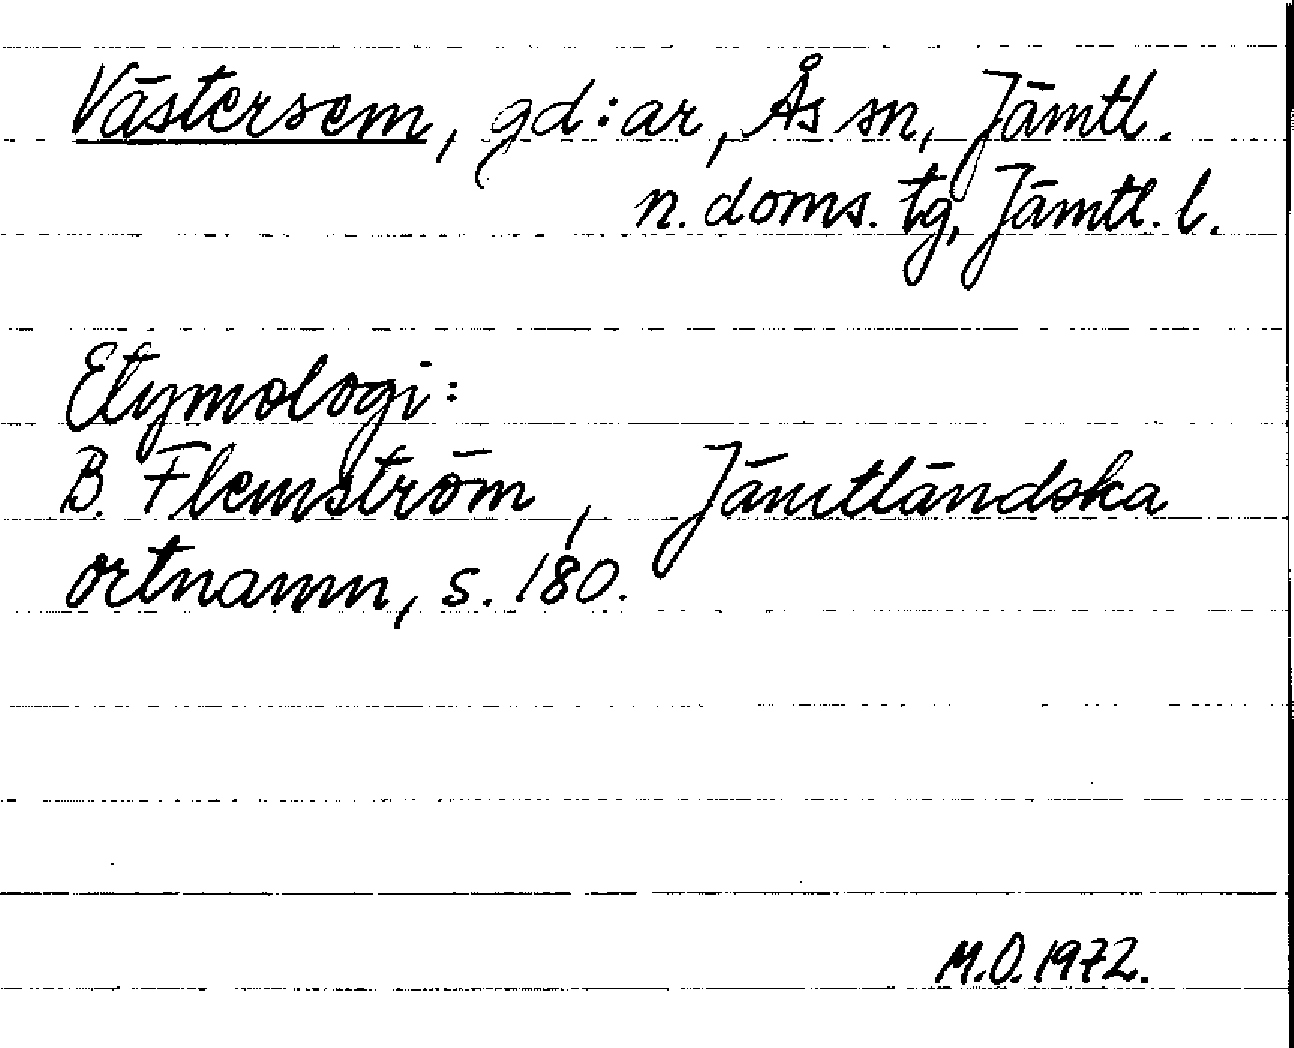 Västersem, gd:ar, Ås sn, Jämtl.
n. doms. tg, Jämtl. l.
Etymologi:
B. Flemström, Jämtländska
ortnamn, s. 180.
M.O. 1972.